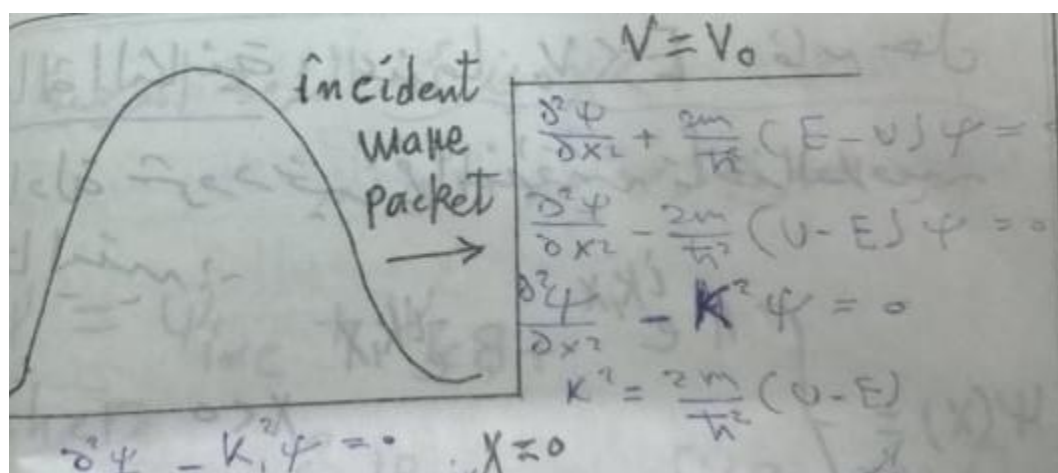 incident
wave
packet
V = V₀
∂²ψ/∂x² + 2m/ħ² (E - U) ψ = 0
∂²ψ/∂x² - 2m/ħ² (U - E) ψ = 0
∂²ψ/∂x² - K² ψ = 0
K² = 2m/ħ² (U - E)
∂²ψ - K₁² ψ = 0
X = 0